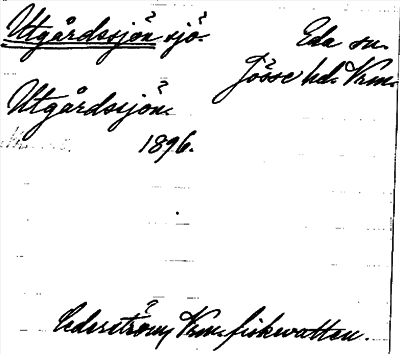 Utgårdssjön sjö.
Eda sn.
Jösse hd. Vrm.
Utgårdssjön.
1896.
Cederström, Vrm. fiskvatten.